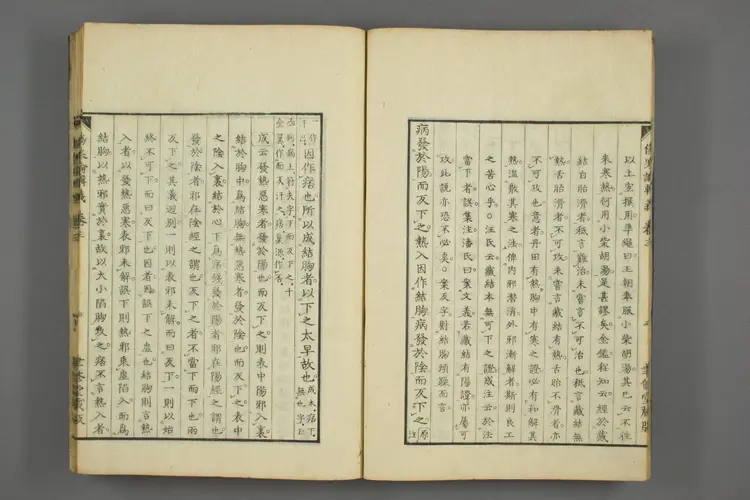 以上宜撰用準繩曰王朝奉服小柴胡湯其已云不往
來寒熱何用小柴胡湯是甚謬矣金鑑程知云經於藏
結白胎滑者秪言難治未嘗言不可治也秪言藏結無
熱舌胎滑者不可攻未嘗言藏結有熱舌胎不滑者亦
不可攻也意者丹田有熱胸中有寒之證必有和解其
熱溫散其寒之法俾内邪潛消外邪漸解者斯則良工
之苦心乎汪氏云藏結本無可下之證成注云於法
當下者誤葉注潘氏曰葉文義若藏結有陽證亦屬可
攻此說亦恐不必矣葉及字對結胸項強而言
病發於陽而反下之熱入因作結胸病發於陰而反下之原注
因作痞也所以成結胸者以下之太早故也成本痞下無也字
成云發熱惡寒者發於陽也而反下之則表中陽邪入裏
結於胸中爲結胸無熱惡寒者發於陰也而反下之表中
之陰入裏結於心下爲痞發於陽者邪在陽經之謂也
發於陰者邪在陰經之謂也反下之者不當下而下也兩
反下之其義迥別一則以表邪未解而曰反下一則以始
終不可下而曰反下也因者因誤下之虛也結胸則言熱
入者以發熱惡寒表邪未解誤下則熱邪乘虛陷入而爲
結胸以熱邪實於裏故以大小陷胸攻之痞不言熱入者